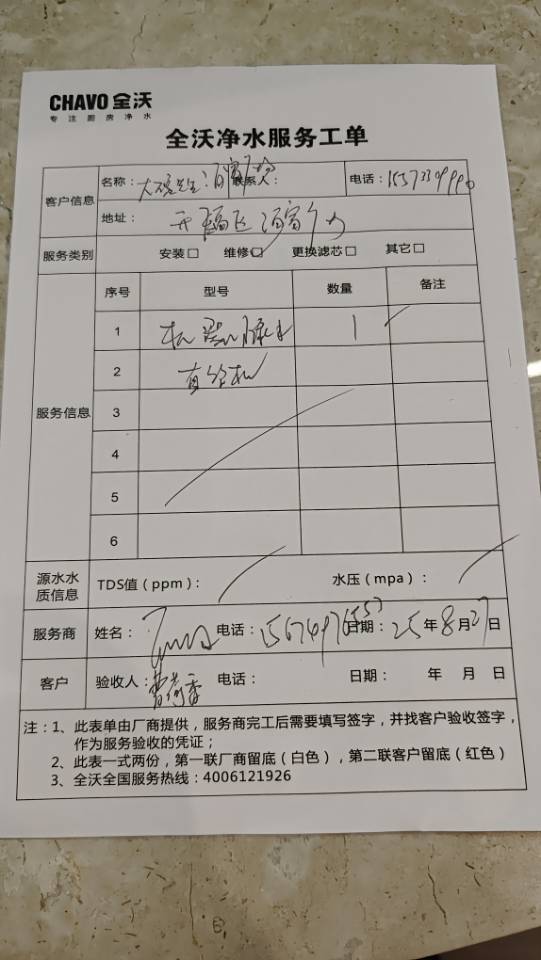 CHAVO 全沃
专注厨房净水
全沃净水服务工单
客户信息
名称：
联系人：
电话：
地址：开福区
服务类别 安装□ 维修□ 更换滤芯□ 其它□
服务信息
序号 型号 数量 备注
1 机器漏水 1
2
3
4
5
6
源水水质信息 TDS值（ppm）： 水压（mpa）：
服务商 姓名： 电话： 日期：25年8月27日
客户 验收人： 电话： 日期： 年 月 日
注：1、此表单由厂商提供，服务商完工后需要填写签字，并找客户验收签字，
作为服务验收的凭证；
2、此表一式两份，第一联厂商留底（白色），第二联客户留底（红色）
3、全沃全国服务热线：4006121926